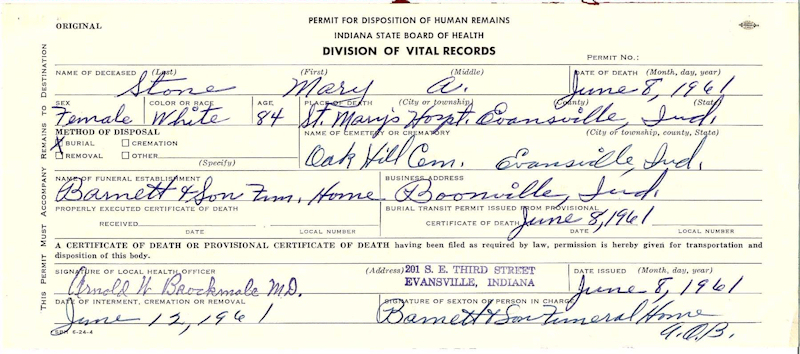 ORIGINAL
PERMIT FOR DISPOSITION OF HUMAN REMAINS
INDIANA STATE BOARD OF HEALTH
DIVISION OF VITAL RECORDS
PERMIT NO.:
THIS PERMIT MUST ACCOMPANY REMAINS TO DESTINATION
NAME OF DECEASED (Last) (First) (Middle) DATE OF DEATH (Month, day, year)
Stone Mary A. June 8, 1961
SEX COLOR OR RACE AGE PLACE OF DEATH (City or township) (County) (State)
Female White 84 St. Mary's Hospt. Evansville, Ind.
METHOD OF DISPOSAL NAME OF CEMETERY OR CREMATORY (City of township, county, State)
X BURIAL CREMATION
REMOVAL OTHER
(Specify)
Oak Hill Cem. Evansville, Ind.
NAME OF FUNERAL ESTABLISHMENT BUSINESS ADDRESS
Barnett & Son Fun. Home Boonville, Ind.
PROPERLY EXECUTED CERTIFICATE OF DEATH BURIAL TRANSIT PERMIT ISSUED FROM PROVISIONAL
RECEIVED CERTIFICATE OF DEATH June 8, 1961
DATE LOCAL NUMBER DATE LOCAL NUMBER
A CERTIFICATE OF DEATH OR PROVISIONAL CERTIFICATE OF DEATH having been filed as required by law, permission is hereby given for transportation and
disposition of this body.
SIGNATURE OF LOCAL HEALTH OFFICER (Address) 201 S. E. THIRD STREET DATE ISSUED (Month, day, year)
Arnold W Brockmole M.D. EVANSVILLE, INDIANA June 8, 1961
DATE OF INTERMENT, CREMATION OR REMOVAL SIGNATURE OF SEXTON OR PERSON IN CHARGE
June 12, 1961 Barnett & Son Funeral Home
G.O.B.
SBH 6-24-4